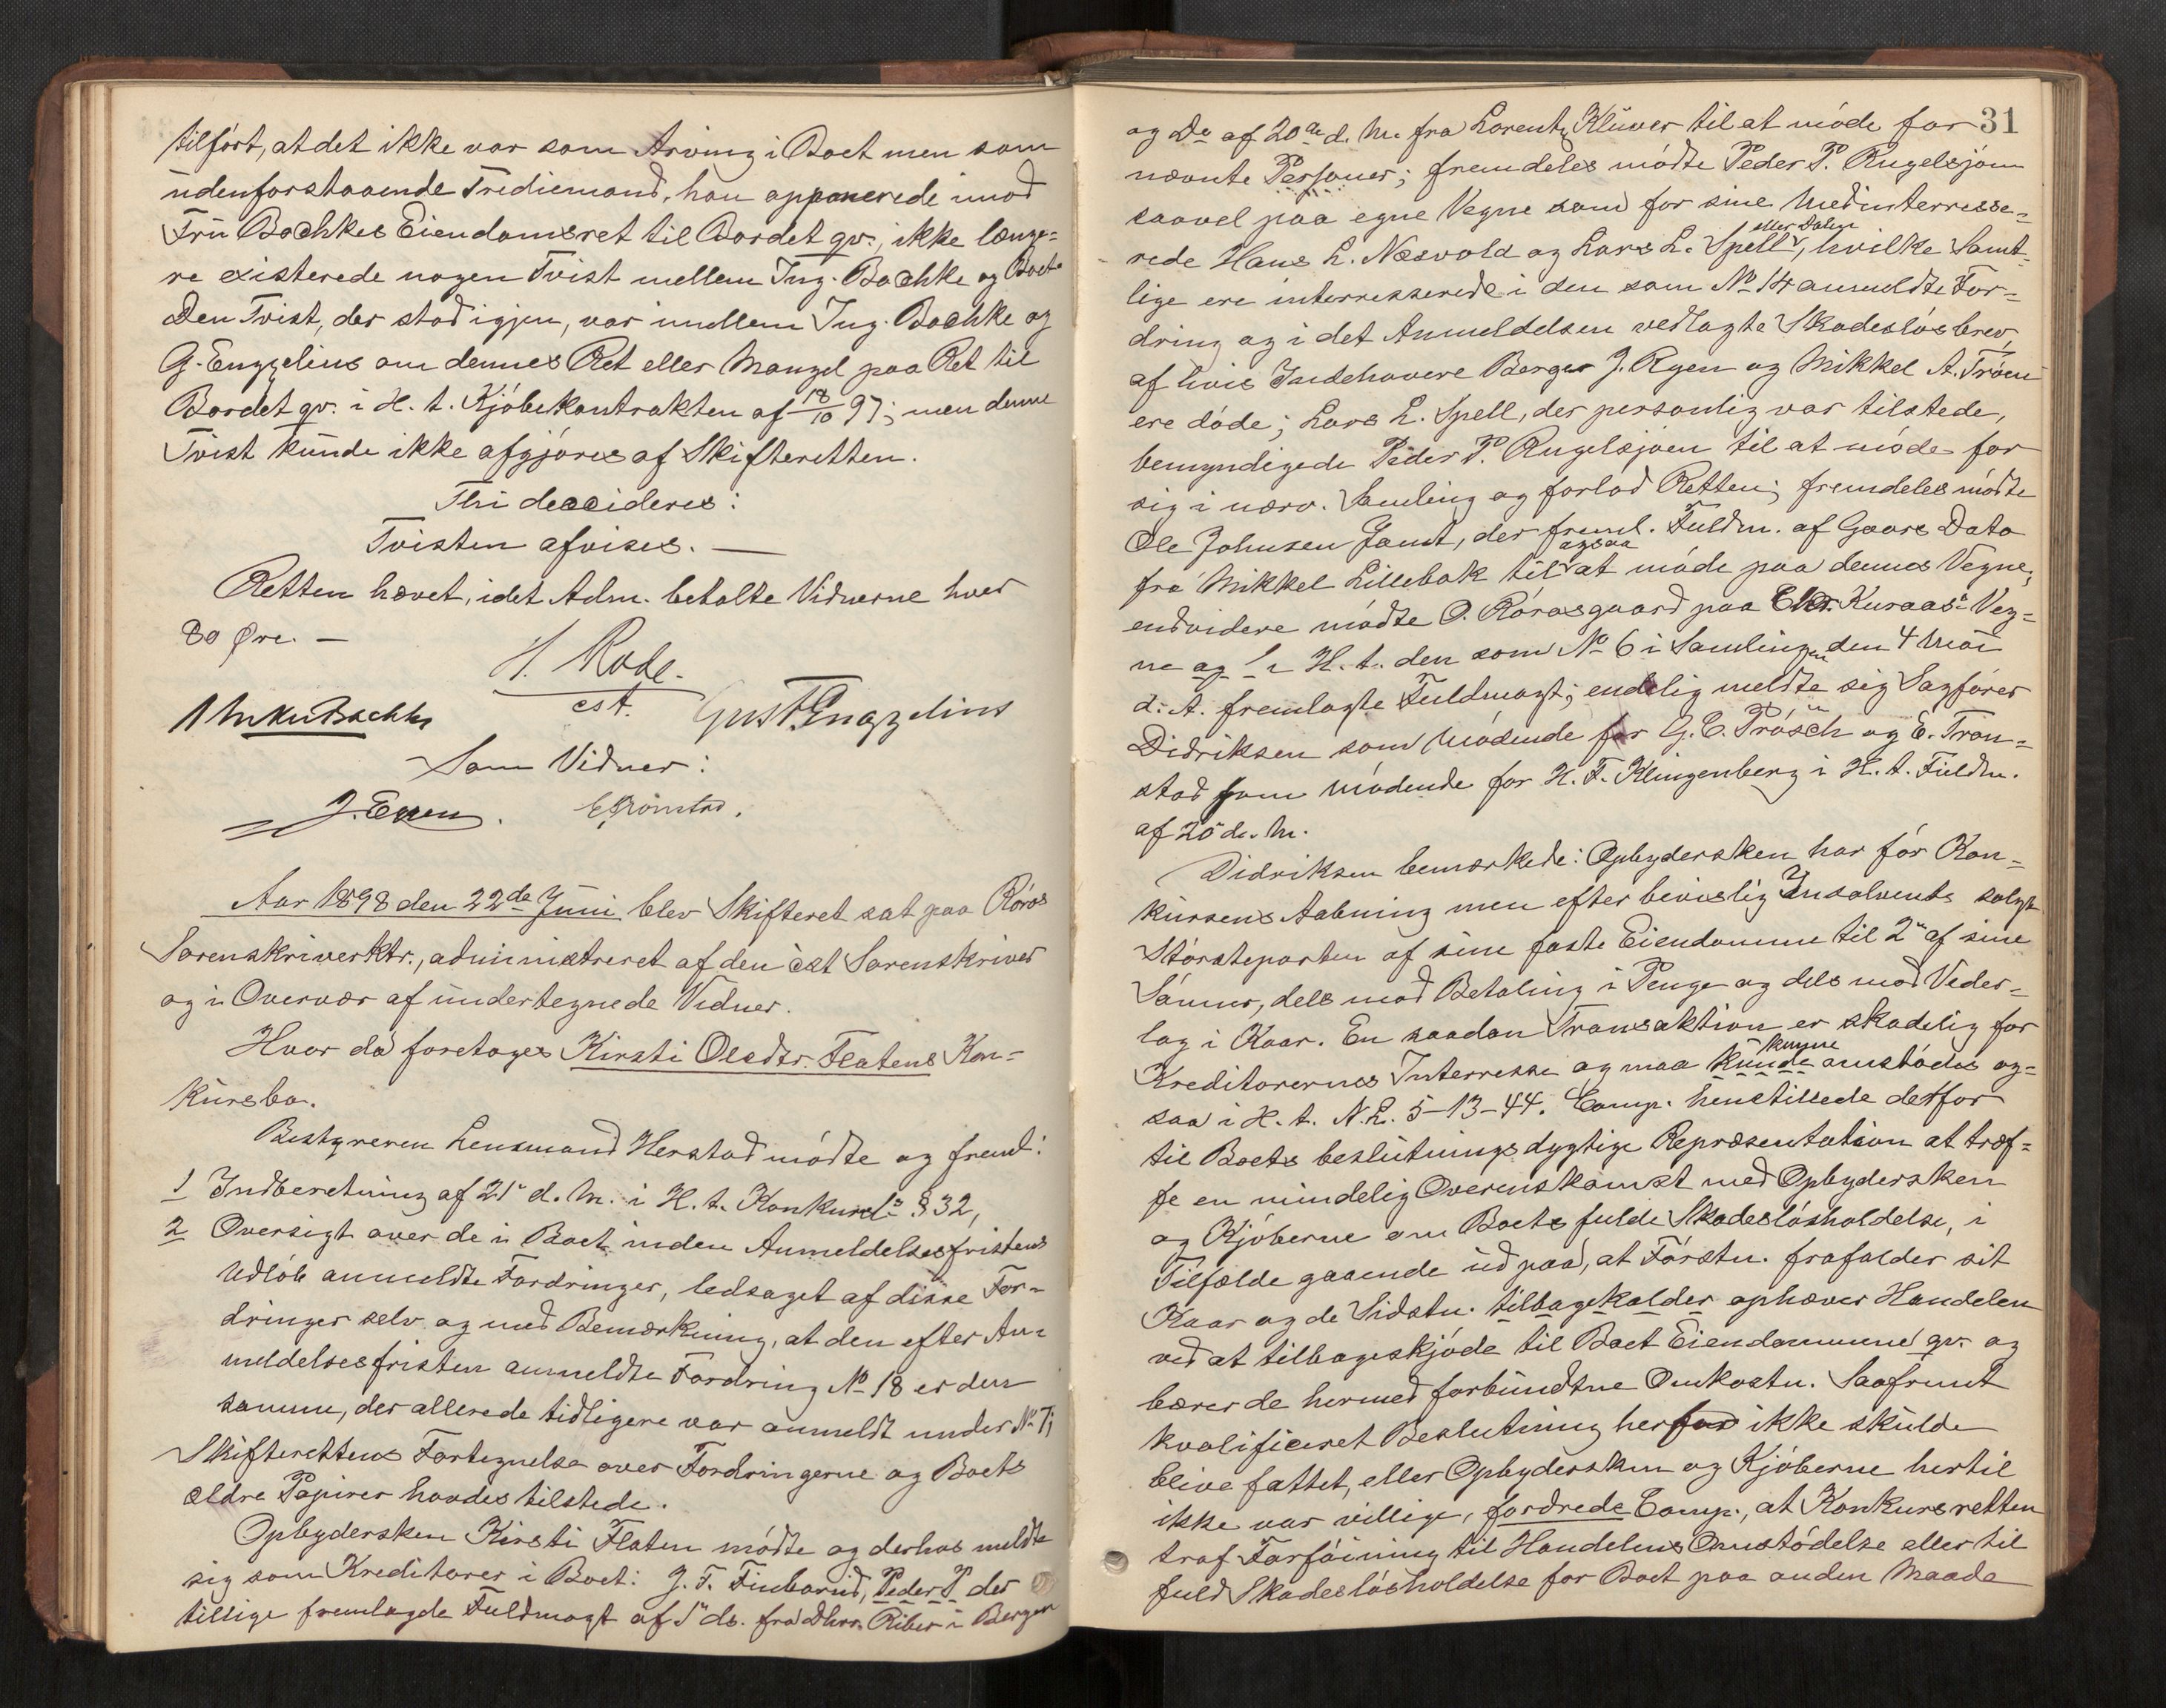 tilført, at det ikke var som Arving i Boet men som
udenforstaaende Trediemand, han opponerede imod
Fru Bachkes Eiendomsret til Bordet qv., ikke længe=
re existerede nogen Tvist mellem Ing. Bachke og Boet.
Den Tvist, der stod igjen, var imellem Ing. Bachke og
G. Engzelius om dennes Ret eller Mangel paa Ret til
Bordet qv. i H. t. Kjøbekontrakten af 18/10 97; men denne
Tvist kunde ikke afgjøres af Skifteretten.
Thi decideres:
Tvisten afvises. —
Retten hævet, idet Adm. betalte Vidnerne hver
80 Øre. —
H. Rode.
cst.
Bachke
Gust. Engzelius
Som Vidner:
J. Eggen. E. Trönstad.
Aar 1898 den 22de Juni blev Skifteret sat paa Røros
Sorenskriverktr., administreret af den cst Sorenskriver
og i Overvær af undertegnede Vidner.
Hvor da foretages Kirsti Olsdtr. Flatens Kon=
kursbo.
Bestyreren Lensmand Herstad mødte og freml:
1 Indberetning af 21' d. M. i H. t. Konkursl: § 32,
2 Oversigt over de i Boet inden Anmeldelsesfristens
Udløb anmeldte Fordringer, ledsaget af disse For=
dringer selv og med Bemærkning, at den efter An=
meldelsesfristen anmeldte Fordring No 18 er den
samme, der allerede tidligere var anmeldt under No 7;
Skifterettens Fortegnelse over Fordringerne og Boets
ældre Papirer havdes tilstede.
Opbydersken Kirsti Flaten mødte og derhos meldte
sig som Kreditorer i Boet: J. F. Finborud, Peder P der
tillige fremlagde Fuldmagt af 1' ds. fra Dhrr. Riber i Bergen
31
og Do af 20de d. M. fra Lorentz Klüver til at møde for
nævnte Personer; fremdeles mødte Peder P. Rugelsjøen
saavel paa egne Vegne som for sine Medinterresse=
eller Dalen
rede Hans L. Næsvold og Lars L. Spell, hvilke Samt=
lige ere interresserede i den som No 14 anmeldte For=
dring og i det Anmeldelsen vedlagte Skadesløsbrev,
af hvis Indehavere Berger J. Ryen og Mikkel A. Trøen
ere døde; Lars L. Spell, der personlig var tilstede,
bemyndigede Peder P. Rugelsjøen til at møde for
sig i nærv. Samling og forlod Retten; fremdeles mødte
Ole Johnsen Jamt, der freml. Fuldm. af Gaars Dato
ogsaa
fra Mikkel Lillebak til at møde paa dennes Vegne;
endvidere mødte O. Rørosgaard paa Chr. Kuraas's Veg=
ne og i H. t. den som No 6 i Samlingen den 4 Mai
d. A. fremlagte Fuldmagt; endelig meldte sig Sagfører
Didriksen som Mødende for G. C. Prösch og E. Trøn=
stad som Mødende for H. F. Klingenberg i H. t. Fuldm.
af 20 d. M.
Didriksen bemærkede: Opbydersken har før Kon=
kursens Aabning men efter bevislig Insolvents solgt
Størsteparten af sine faste Eiendomme til 2" af sine
Sønner, dels mod Betaling i Penge og dels mod Veder=
lag i Kaar. En saadan Transaktion er skadelig for
kunne
Kreditorernes Interresse og maa kunde omstødes og=
saa i H. t. N. L. 5-13-44. Comp. henstillede derfor
til Boets beslutningsdygtige Repræsentation at træf=
fe en mindelig Overenskomst med Opbydersken
og Kjøberne om Boets fulde Skadesløsholdelse, i
Tilfælde gaaende ud paa, at Førstn. frafalder sit
Kaar og de Sidstn. tilbagekalder ophæver Handelen
ved at tilbageskjøde til Boet Eiendommene qv. og
bærer de hermed forbundne Omkostn. Saafremt
kvalificeret Beslutning herfor ikke skulde
blive fattet, eller Opbydersken og Kjøberne hertil
ikke var villige, fordrede Comp., at Konkursretten
traf Forføining til Handelens Omstødelse eller til
fuld Skadesløsholdelse for Boet paa anden Maade